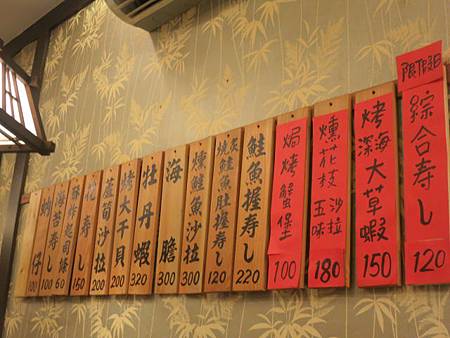 限假日
綜合寿し
120
烤深海大草蝦
150
燻花枝沙拉
五味
180
焗烤蟹堡
100
鮭魚握寿し
220
炙燒鮭魚肚握寿し
120
燻鮭魚沙拉
300
海膽
300
牡丹蝦
320
烤大干貝
200
蘆筍沙拉
200
花寿し
150
酥炸起司條
60
海苔寿し
100
蚵仔
100